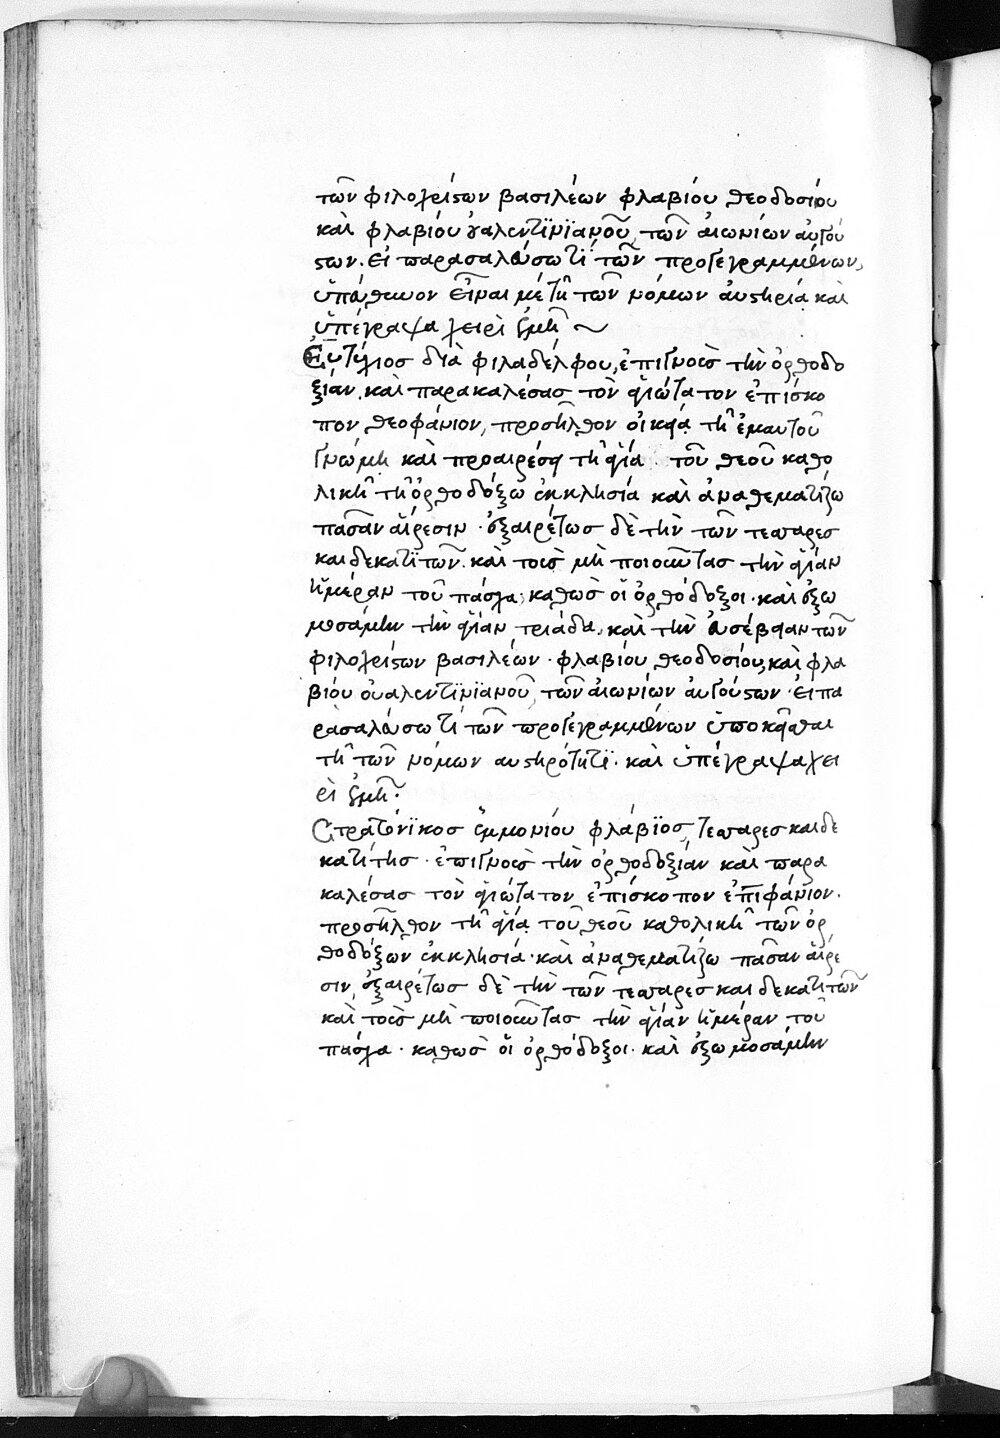 τῶν φιλοχρίστων βασιλέων φλαβίου θεοδοσίου
καὶ φλαβίου οὐαλεντϊνϊανοῦ, τῶν αἰωνίων αὐγού
στων. εἰ παρασαλεύσω τὶ τῶν προγεγραμμένων,
ὑπεύθυνον εἶναι με τῆ τῶν νόμων αὐστηρία καὶ
ὑπέγραψα χειρὶ ἐμῆ
Εὐτύχιος διὰ φιλαδέλφου, ἐπιγνοὺς τὴν ὀρθοδο
ξίαν, καὶ παρακαλέσας τὸν ἁγιώτατον ἐπίσκο
πον θεοφάνιον, προσῆλθον οἰκεία τῆ ἐμαυτοῦ
γνώμη καὶ προαιρέσει τῆ ἁγία τοῦ θεοῦ καθο
λικῆ τῆ ὀρθοδόξω ἐκκλησία καὶ ἀναθεματίζω
πᾶσαν αἵρεσιν. ἐξαιρέτως δὲ τὴν τῶν τεσσαρες
καιδεκατϊτῶν. καὶ τοὺς μὴ ποιοῦντας τὴν ἁγίαν
ἡμέραν τοῦ πάσχα, καθὼς οἱ ὀρθόδοξοι. καὶ ἐξω
μοσάμην τὴν ἁγίαν τριάδα, καὶ τὴν εὐσέβειαν τῶν
φιλοχρίστων βασιλέων. φλαβίου θεοδοσίου, καὶ φλα
βίου οὐαλεντϊνϊανοῦ, τῶν αἰωνίων αὐγούστων. εἰ πα
ρασαλεύσω τὶ τῶν προγεγραμμένων ὑποκεῖσθαι
τῆ τῶν νόμων αυστηρότητϊ. καὶ ὑπέγραψα χει
ρὶ ἐμῆ.
Στρατόνϊκος ἐμμονίου φλάβϊος, τεσσαρεσκαιδε
κατίτης. ἐπιγνοὺς τὴν ὀρθοδοξίαν καὶ παρα
καλέσας τὸν ἁγιώτατον ἐπίσκοπον ἐπιφάνιον.
προσῆλθον τῆ ἁγία τοῦ θεοῦ καθολικῆ τῶν ὀρ
θοδόξων ἐκκλησία. καὶ ἀναθεματίζω πᾶσαν αἵρε
σιν, ἐξαιρέτως δὲ τὴν τῶν τεσσαρεσκαιδεκατιτῶν
καὶ τοὺς μὴ ποιοῦντας τὴν ἁγίαν ἡμέραν τοῦ
πάσχα. καθὼς οἱ ὀρθόδοξοι. καὶ ἐξωμοσάμην